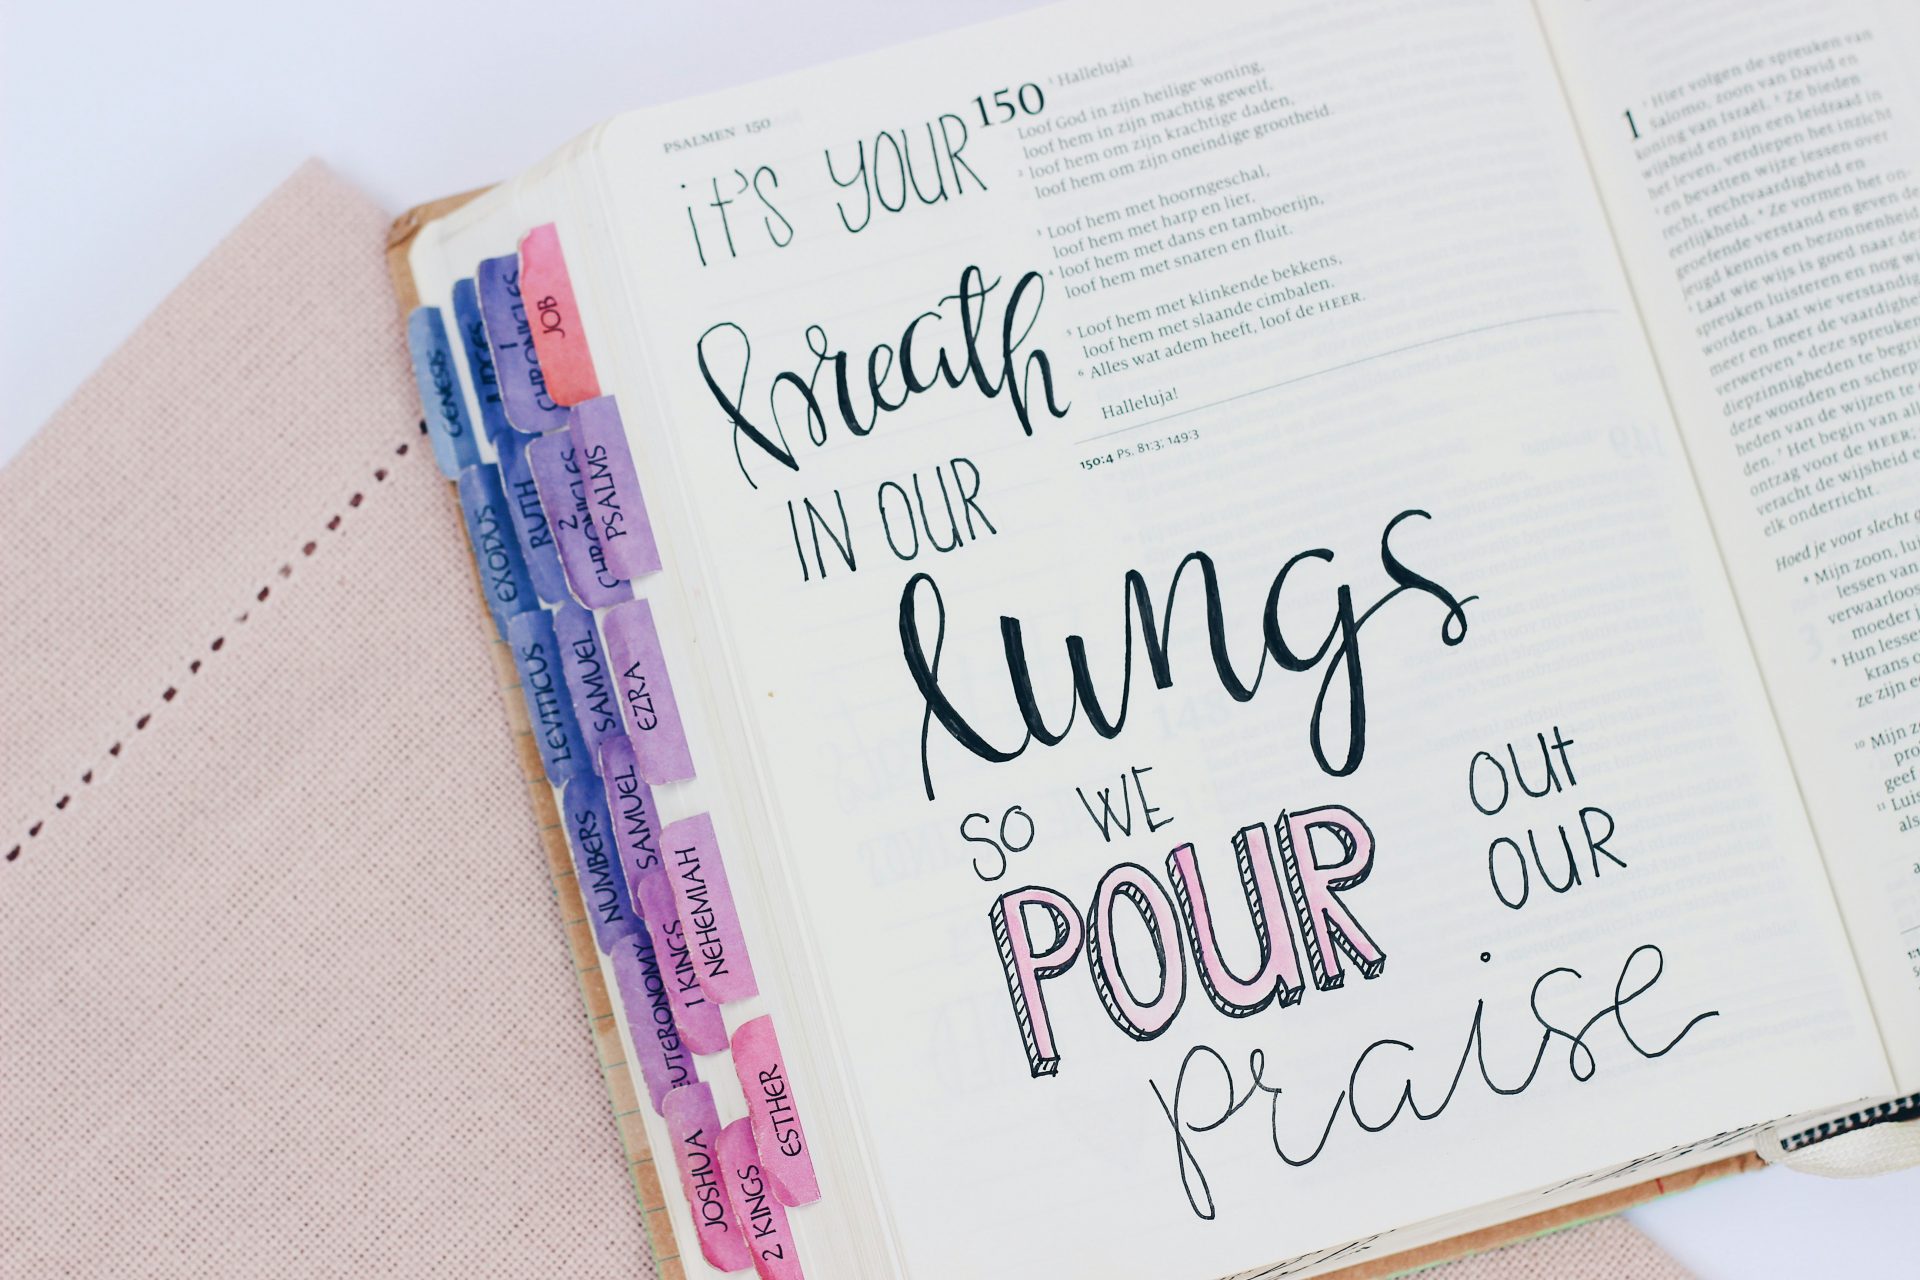 PSALMEN 150
it's YOUR
breath
IN OUR
lungs
SO WE
POUR
OUt
OUR
praise
150
1 Halleluja!
Loof God in zijn heilige woning,
loof hem in zijn machtig gewelf,
2 loof hem om zijn krachtige daden,
loof hem om zijn oneindige grootheid.
3 Loof hem met hoorngeschal,
loof hem met harp en lier,
4 loof hem met dans en tamboerijn,
loof hem met snaren en fluit.
5 Loof hem met klinkende bekkens,
loof hem met slaande cimbalen.
6 Alles wat adem heeft, loof de HEER.
Halleluja!
150:4 Ps. 81:3; 149:3
GENESIS
EXODUS
LEVITICUS
NUMBERS
EUTERONOMY
JOSHUA
JUDGES
RUTH
SAMUEL
SAMUEL
1 KINGS
2 KINGS
1 CHRONICLES
2 CHRONICLES
EZRA
NEHEMIAH
ESTHER
JOB
PSALMS
1
1 Hier volgen de spreuken van
Salomo, zoon van David en
koning van Israël. 2 Ze bieden
wijsheid en zijn een leidraad in
het leven, verdiepen het inzicht
3 en bevatten wijze lessen over
recht, rechtvaardigheid en
eerlijkheid. 4 Ze vormen het on-
geoefende verstand en geven de
jeugd kennis en bezonnenheid.
5 Laat wie wijs is goed naar
spreuken luisteren en nog
worden. Laat wie verstandig
meer en meer de vaardigheid
verwerven 6 deze spreuken
diepzinnigheden te
deze woorden en
heden van de wijzen te
den. 7 Het begin van
ontzag voor de HEER;
veracht de wijsheid
elk onderricht.
Hoed je voor slecht
8 Mijn zoon,
lessen van
moeder
9 Hun
krans
ze zijn
10 Mijn
geef
11
als